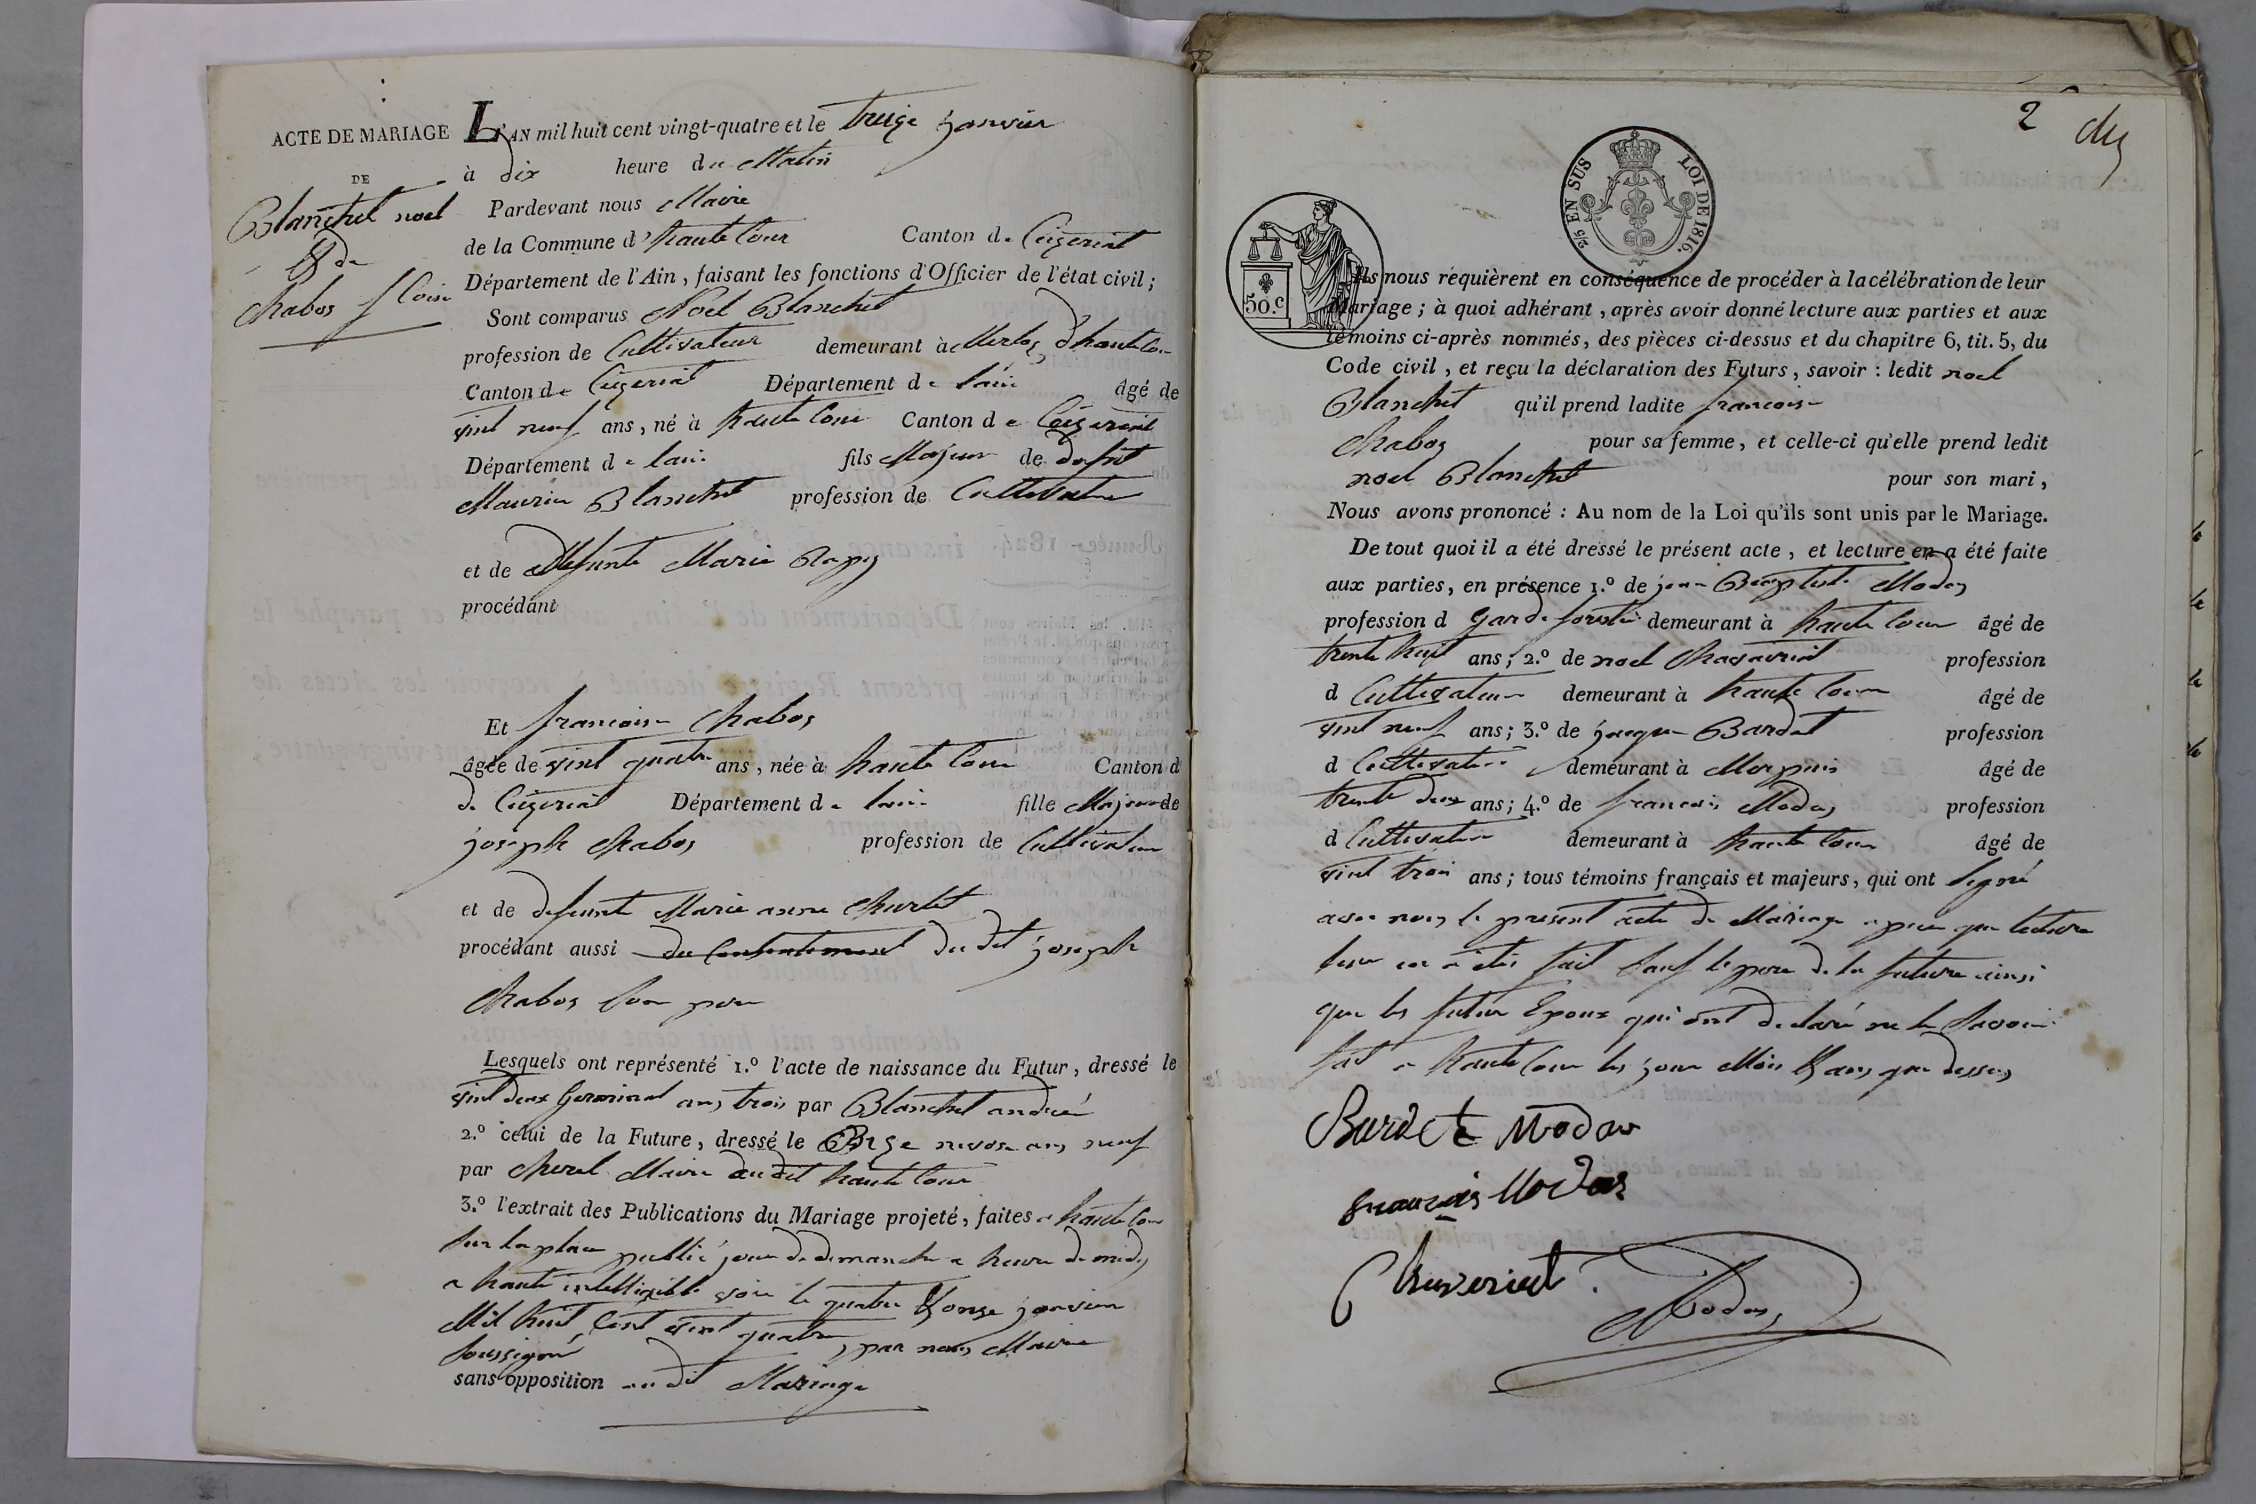 ACTE DE MARIAGE
DE
Blanchet noel
& de
Chabos f Coise
L'AN mil huit cent vingt-quatre et le treize janvier
à dix heure du Matin
Pardevant nous Maire
de la Commune d'haute Cour Canton de Ceizeriat
Département de l'Ain, faisant les fonctions d'Officier de l'état civil;
Sont comparus Noel Blanchet
profession de Cultivateur demeurant à d'haute Cour
Canton de Ceizeriat Département de lain âgé de
vint neuf ans, né à haute Cour Canton de Ceizeriat
Département de lain fils Majeur de defut
Maurice Blanchet profession de Cultivateur
et de deffunte Marie
procédant
Et francoise Chabos
âgée de vint quatre ans, née à haute Cour Canton d
de Ceizeriat Département de lain fille Majeur de
joseph Chabos profession de Cultivateur
et de defunte Marie anne Churlet
procédant aussi du Consentement du dit joseph
Chabos son pere
Lesquels ont représenté 1.º l'acte de naissance du Futur, dressé le
vint deux Germinal ans trois par Blanchet andrée
2.º celui de la Future, dressé le onze nivose ans neuf
par Morel Maire du dit haute Cour
3.º l'extrait des Publications du Mariage projeté, faites a haute Cour
sur la place public jour de dimanche a heure de midy
a haute intelligible voix le quatre & onze janvier
Mil huit Cent vint quatre, par nous Maire
soussigné
sans opposition au dit Mariage
2
2/5 EN SUS
LOI DE 1816.
50.c
Ils nous requièrent en conséquence de procéder à la célébration de leur
Mariage; à quoi adhérant, après avoir donné lecture aux parties et aux
témoins ci-après nommés, des pièces ci-dessus et du chapitre 6, tit. 5, du
Code civil, et reçu la déclaration des Futurs, savoir: ledit noel
Blanchet qu'il prend ladite francoise
Chabos pour sa femme, et celle-ci qu'elle prend ledit
noel Blanchet pour son mari,
Nous avons prononcé: Au nom de la Loi qu'ils sont unis par le Mariage.
De tout quoi il a été dressé le présent acte, et lecture en a été faite
aux parties, en présence 1.º de jean Baptiste Modas
profession d Garde forestié demeurant à haute Cour âgé de
trente huit ans; 2.º de noel Chavaeriat profession
d Cultivateur demeurant à haute Cour âgé de
vint neuf ans; 3.º de jacque Bardet profession
d Cultivateur demeurant à âgé de
trente deux ans; 4.º de francois Modas profession
d Cultivateur demeurant à haute Cour âgé de
vint trois ans; tous témoins français et majeurs, qui ont signé
avec nous le present acte de Mariage apres que lecture
leur en a été fait sauf le pere de la future ainsi
que les futur Epoux qui ont declaré ne le savoir
fait a haute Cour les jour Mois & ans que dessus
Bardet Modas
francois Modas
Chaveriat
Modas